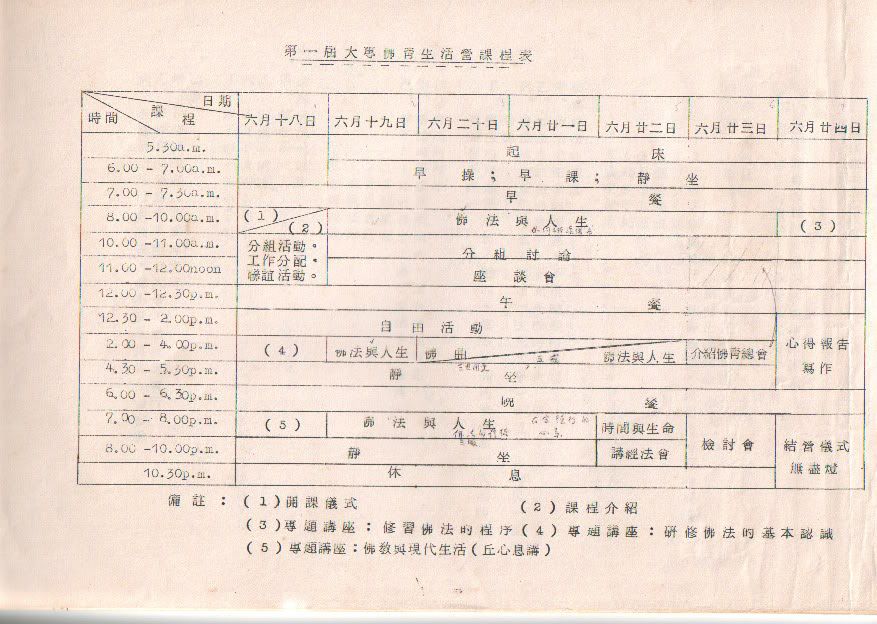 第一屆大專佛青生活營課程表
日期
課程
時間
六月十八日 六月十九日 六月二十日 六月廿一日 六月廿二日 六月廿三日 六月廿四日
5.30a.m. 起床
6.00 - 7.00a.m. 早操；早課；靜坐
7.00 - 7.30a.m. 早餐
8.00 -10.00a.m. (1) (2) 佛法與人生 (3)
10.00 -11.00a.m. 分組活動。 分組討論
工作分配。
11.00 -12.00noon 聯誼活動。 座談會
12.00 -12.30p.m. 午餐
12.30 - 2.00p.m. 自由活動
2.00 - 4.00p.m. (4) 佛法與人生 佛曲 佛法與人生 介紹佛青總會 心得報告
寫作
4.30 - 5.30p.m. 靜坐
6.00 - 6.30p.m. 晚餐
7.00 - 8.00p.m. (5) 佛法與人生 時間與生命 檢討會 結營儀式
無盡燈
8.00 -10.00p.m. 靜坐 講經法會
10.30p.m. 休息
備註：(1)開課儀式 (2)課程介紹
(3)專題講座：修習佛法的程序(4)專題講座：研修佛法的基本認識
(5)專題講座：佛教與現代生活(丘心息講)